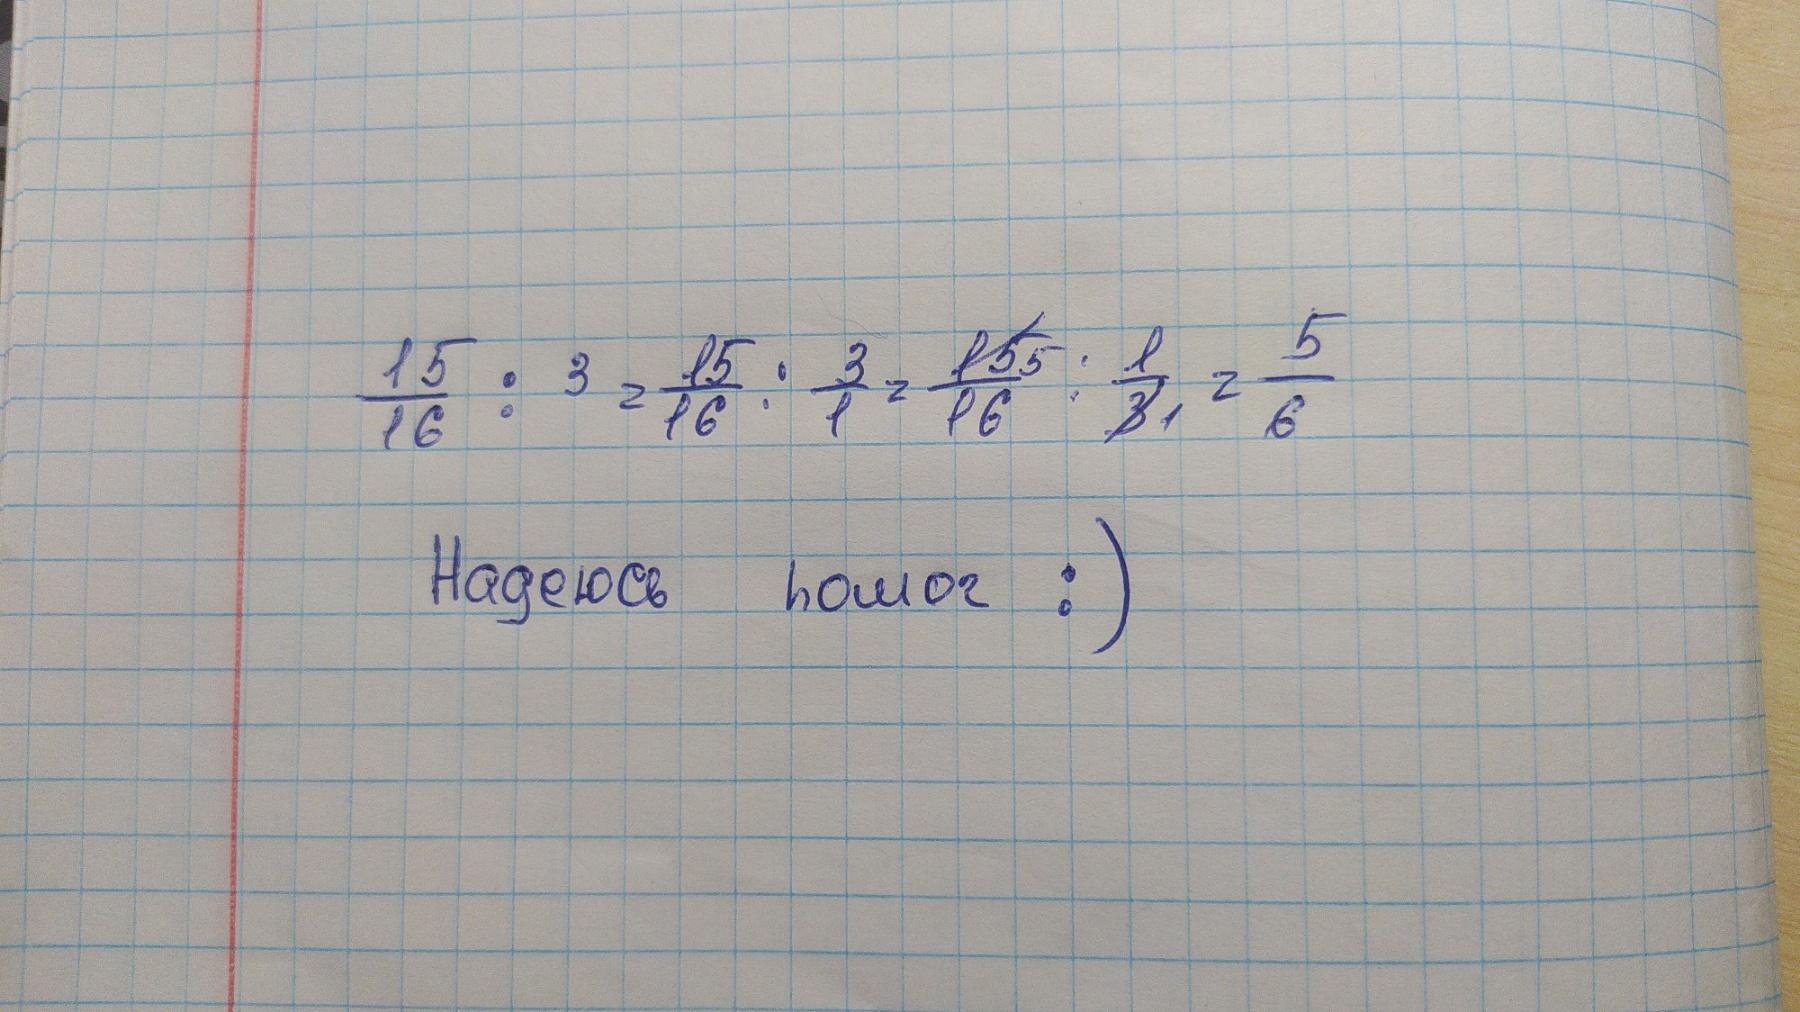 15/16 : 3 = 15/16 : 3/1 = 15 5/16 : 1/3 1 = 5/6
Надеюсь помог :)